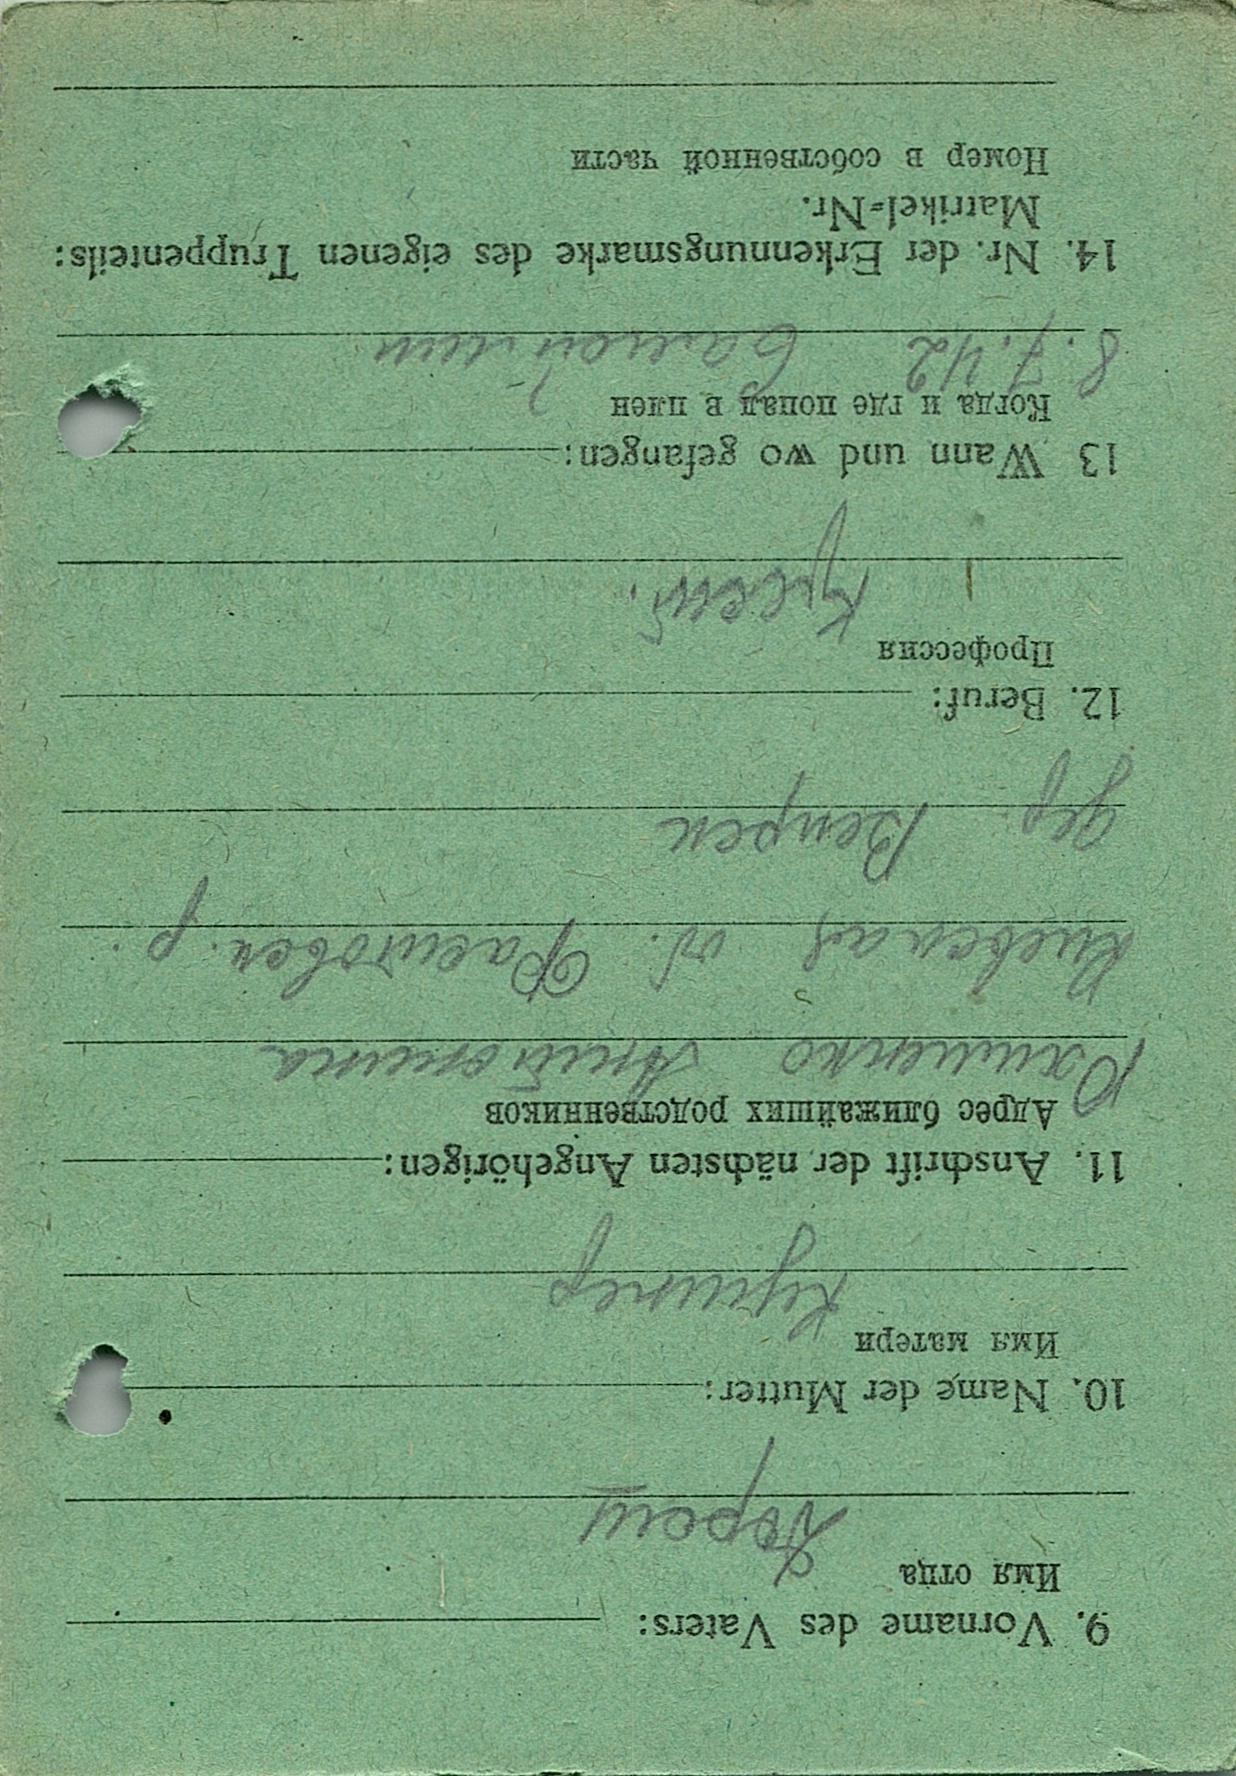 9. Vorname des Vaters:
Имя отца
10. Name der Mutter:
Имя матери
11. Anschrift der nächsten Angehörigen:
Адрес ближайших родственников
Юхименко
Киевская об. Фастовск. р.
дер Вепрек
12. Beruf:
Профессия
Крест.
13 Wann und wo gefangen:
Когда и где попал в плен
8.7.42
14. Nr. der Erkennungsmarke des eigenen Truppenteils:
Matrikel-Nr.
Номер в собственной части